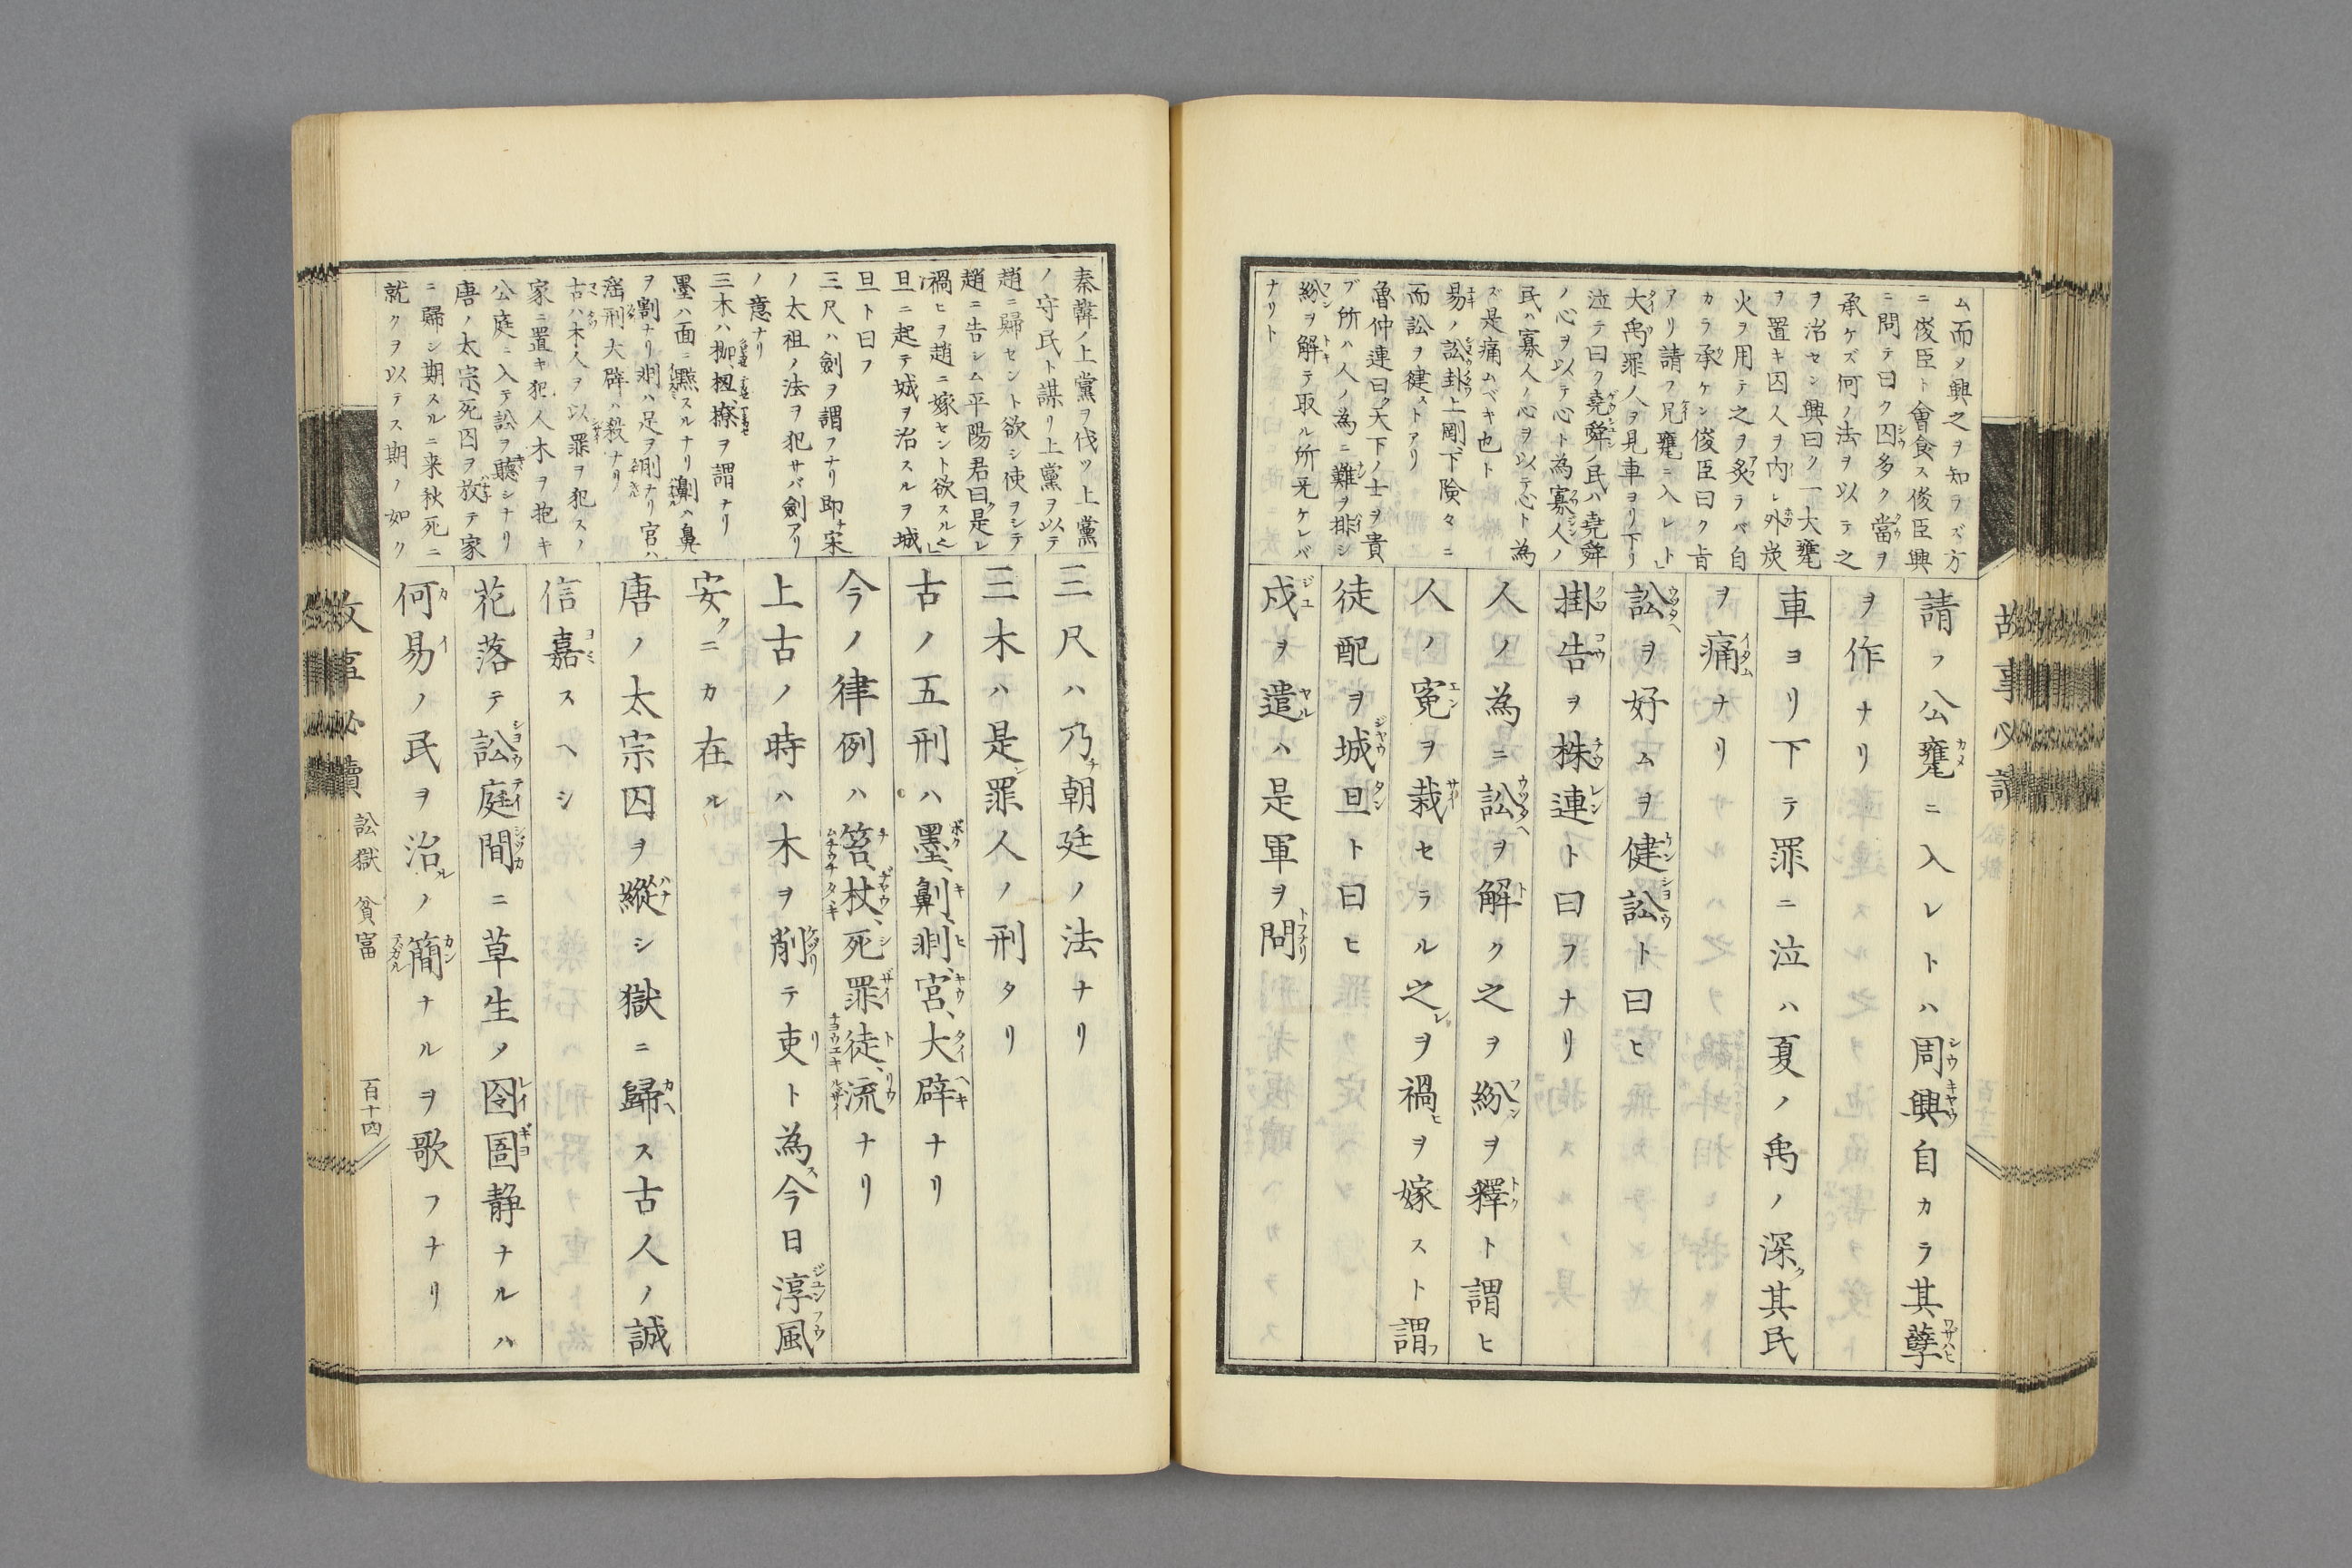 ム而ノ興之ヲ知ラズ方
ニ俊臣ト會食ス俊臣興
ニ問テ曰ク囚多ク當ヲ
承ケズ何ノ法ヲ以テ之
ヲ治セン興曰ク一大甕
ヲ置キ囚人ヲ内レ外炭
火ヲ用テ之ヲ炙ラバ自
カラ承ケン俊臣曰ク吉
アリ請フ兄甕ニ入レト
大禹罪人ヲ見車ヨリ下リ
泣テ曰ク堯舜ノ民ハ堯舜
ノ心ヲ以テ心ト為寡人ノ
民ハ寡人ノ心ヲ以テ心ト為
ズ是痛ムベキ也ト
易ノ訟卦上剛下険々ニ
而訟ヲ健ストアリ
魯仲連曰ク天下ノ士ヲ貴
ブ所ハ人ノ為ニ難ヲ排シ
紛ヲ解テ取ル所旡ケレバ
ナリト
請フ公甕ニ入レトハ周興自カラ其孽
ヲ作ナリ
車ヨリ下テ罪ニ泣ハ夏ノ禹ノ深ク其民
ヲ痛ナリ
訟ヲ好ムヲ健訟ト曰ヒ
掛告ヲ株連ト曰フナリ
人ノ為ニ訟ヲ解ク之ヲ紛ヲ釋ト謂ヒ
人ノ冤ヲ栽セラル之レヲ禍ヒヲ嫁スト謂フ
徒配ヲ城旦ト曰ヒ
戍ヲ遣ハ是軍ヲ問
故事必讀
秦韓ノ上黨ヲ伐ツ上黨
ノ守民ト謀リ上黨ヲ以テ
趙ニ歸セント欲シ使ヲシテ
趙ニ告シム平陽君曰ク是レ
禍ヒヲ趙ニ嫁セント欲スルト
旦ニ起テ城ヲ治スルヲ城
旦ト曰フ
三尺ハ劍ヲ謂フナリ即ナ宋
ノ太祖ノ法ヲ犯サバ劍アリ
ノ意ナリ
三木ハ枷、杻、撩ヲ謂ナリ
墨ハ面ニ黥スルナリ劓ハ鼻
ヲ割ナリ剕ハ足ヲ刖ナリ宮ハ
淫刑大辟ハ殺ナリ
古ハ木人ヲ以罪ヲ犯スノ
家ニ置キ犯人木ヲ抱キ
公庭ニ入テ訟ヲ聽シナリ
唐ノ太宗死囚ヲ放テ家
ニ歸シ期スルニ来秋死ニ
就クヲ以テス期ノ如ク
三尺ハ乃チ朝廷ノ法ナリ
三木ハ是レ罪人ノ刑タリ
古ノ五刑ハ墨、劓、剕、宮、大辟ナリ
今ノ律例ハ笞、杖、死罪、徒、流ナリ
上古ノ時ハ木ヲ削テ吏ト為ス今日淳風
安クニカ在ル
唐ノ太宗囚ヲ縱シ獄ニ歸ス古人ノ誠
信嘉スヘシ
花落テ訟庭間ニ草生メ囹圄静ナルハ
何易ノ民ヲ治ルノ簡ナルヲ歌フナリ
故事必讀 訟獄 貧富 百十四